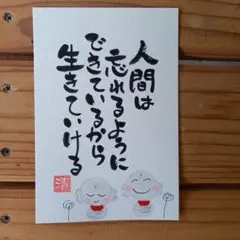 人間は
忘れるように
できているから
生きていける
清